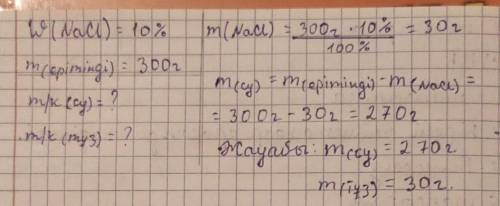 W(NaCl) = 10%
m(ерітінді) = 300г
m/к(су) = ?
m/к(тұз) = ?
m(NaCl) = 300г · 10% / 100% = 30г
m(су) = m(ерітінді) - m(NaCl) =
= 300г - 30г = 270г
Жауабы: m(су) = 270г
m(тұз) = 30г.